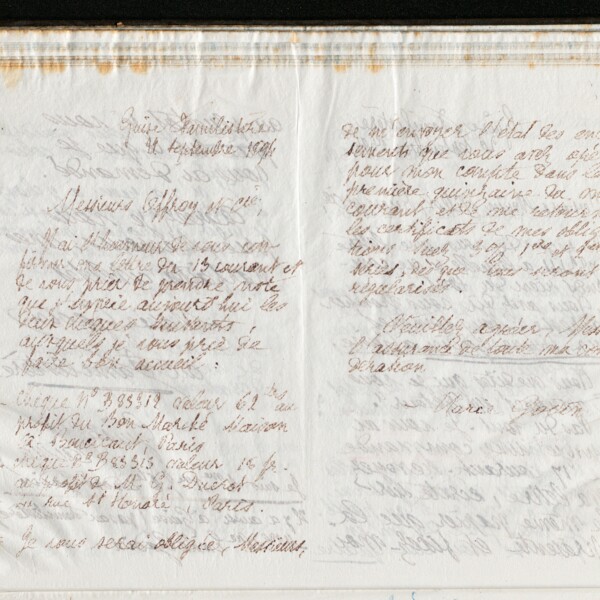 Guise Familistère
21 septembre 1894
Messieurs Geffroy et Cie,
J'ai l'honneur de vous con-
firmer ma lettre du 13 courant et
de vous prier de prendre note
que j'expédie aujourd'hui les
deux chèques suivants,
auxquels je vous prie de
faire bon accueil :
Chèque N° B 83312 valeur 62 au
profit du Bon Marché Maison
Boucicaut, Paris
chèque N° B 83313 valeur 18 fr.
au profit de M. Ducrot
rue St Honoré, Paris.
Je vous serai obligée, Messieurs,
de m'envoyer l'état des en-
caissements que vous avez opérés
pour mon compte dans la
première quinzaine du mois
courant et de me retourner
les certificats de mes obliga-
tions
séries, dès que seront
régularisés.
Veuillez agréer, Mess
l'assurance de toute ma con-
sidération
Marie Godin